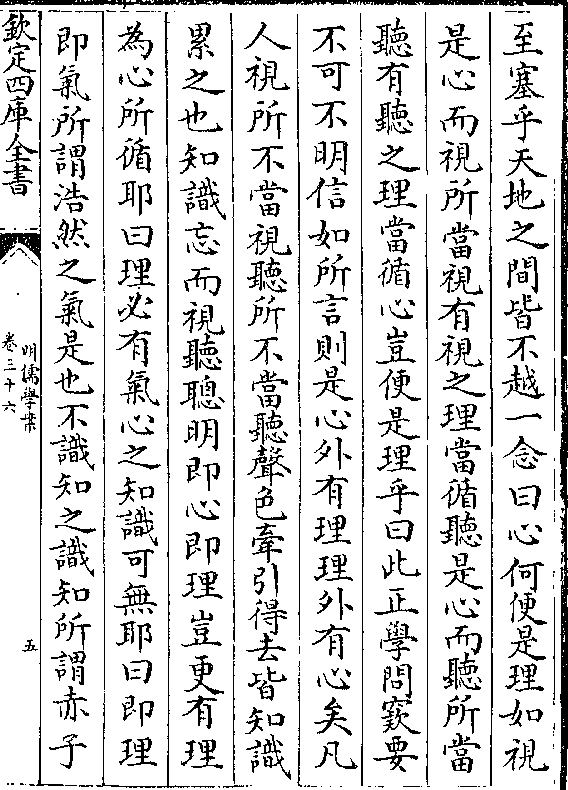 至塞乎天地之間皆不越一念曰心何便是理如視
是心而視所當視有視之理當循聽是心而聽所當
聽有聽之理當循心豈便是理乎曰此正學問竅要
不可不明信如所言則是心外有理理外有心矣凡
人視所不當視聽所不當聽聲色牽引得去皆知識
累之也知識忘而視聽聰明即心即理豈更有理
為心所循耶曰理必有氣心之知識可無耶曰即理
即氣所謂浩然之氣是也不識知之識知所謂赤子
欽定四庫全書
明儒學案
卷三十六
五